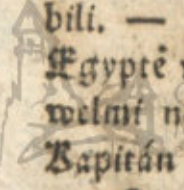 bili. —
Egyptě
welmi
Kapitán